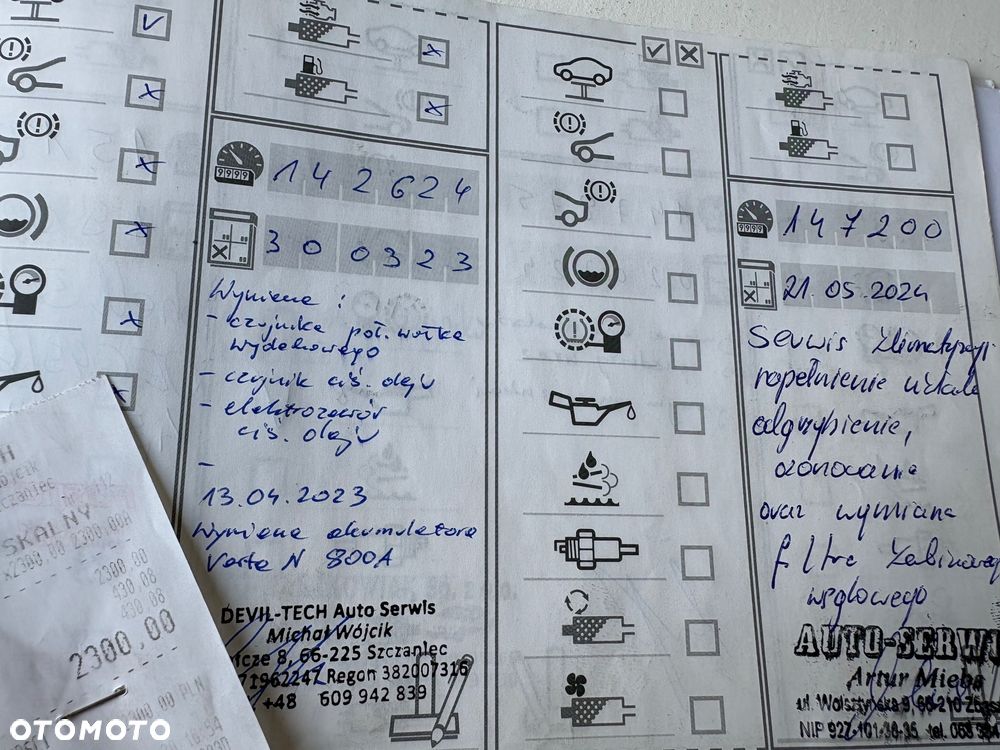 9999
142624
30 03 23
Wymiena :
- czujnika poł. wałka
wydechowego
- czyjnik ciś. oleju
- elektrozawór
ciś. oleju
-
13.04.2023
Wymiena akumulatora
Varta N 800A
DEVIL-TECH Auto Serwis
Michał Wójcik
8, 66-225 Szczaniec
71962247 Regon 382007316
+48 609 942 839
9999
147200
21.05.2024
Serwis klimatyzacji
napełnienie układu
odgrzybienie,
ozonowanie
oraz wymiana
filtra kabinowego
węglowego
AUTO-SERW
Artur
ul. Wolsztyńska 9, 66-210
NIP 927-101-36-35 tel. 068
H
Wójcik
czaniec
SKALNY
x2300,00 2300,00A
2300,00
430,08
430,08
2300,00
2300,00 PLN
OTOMOTO